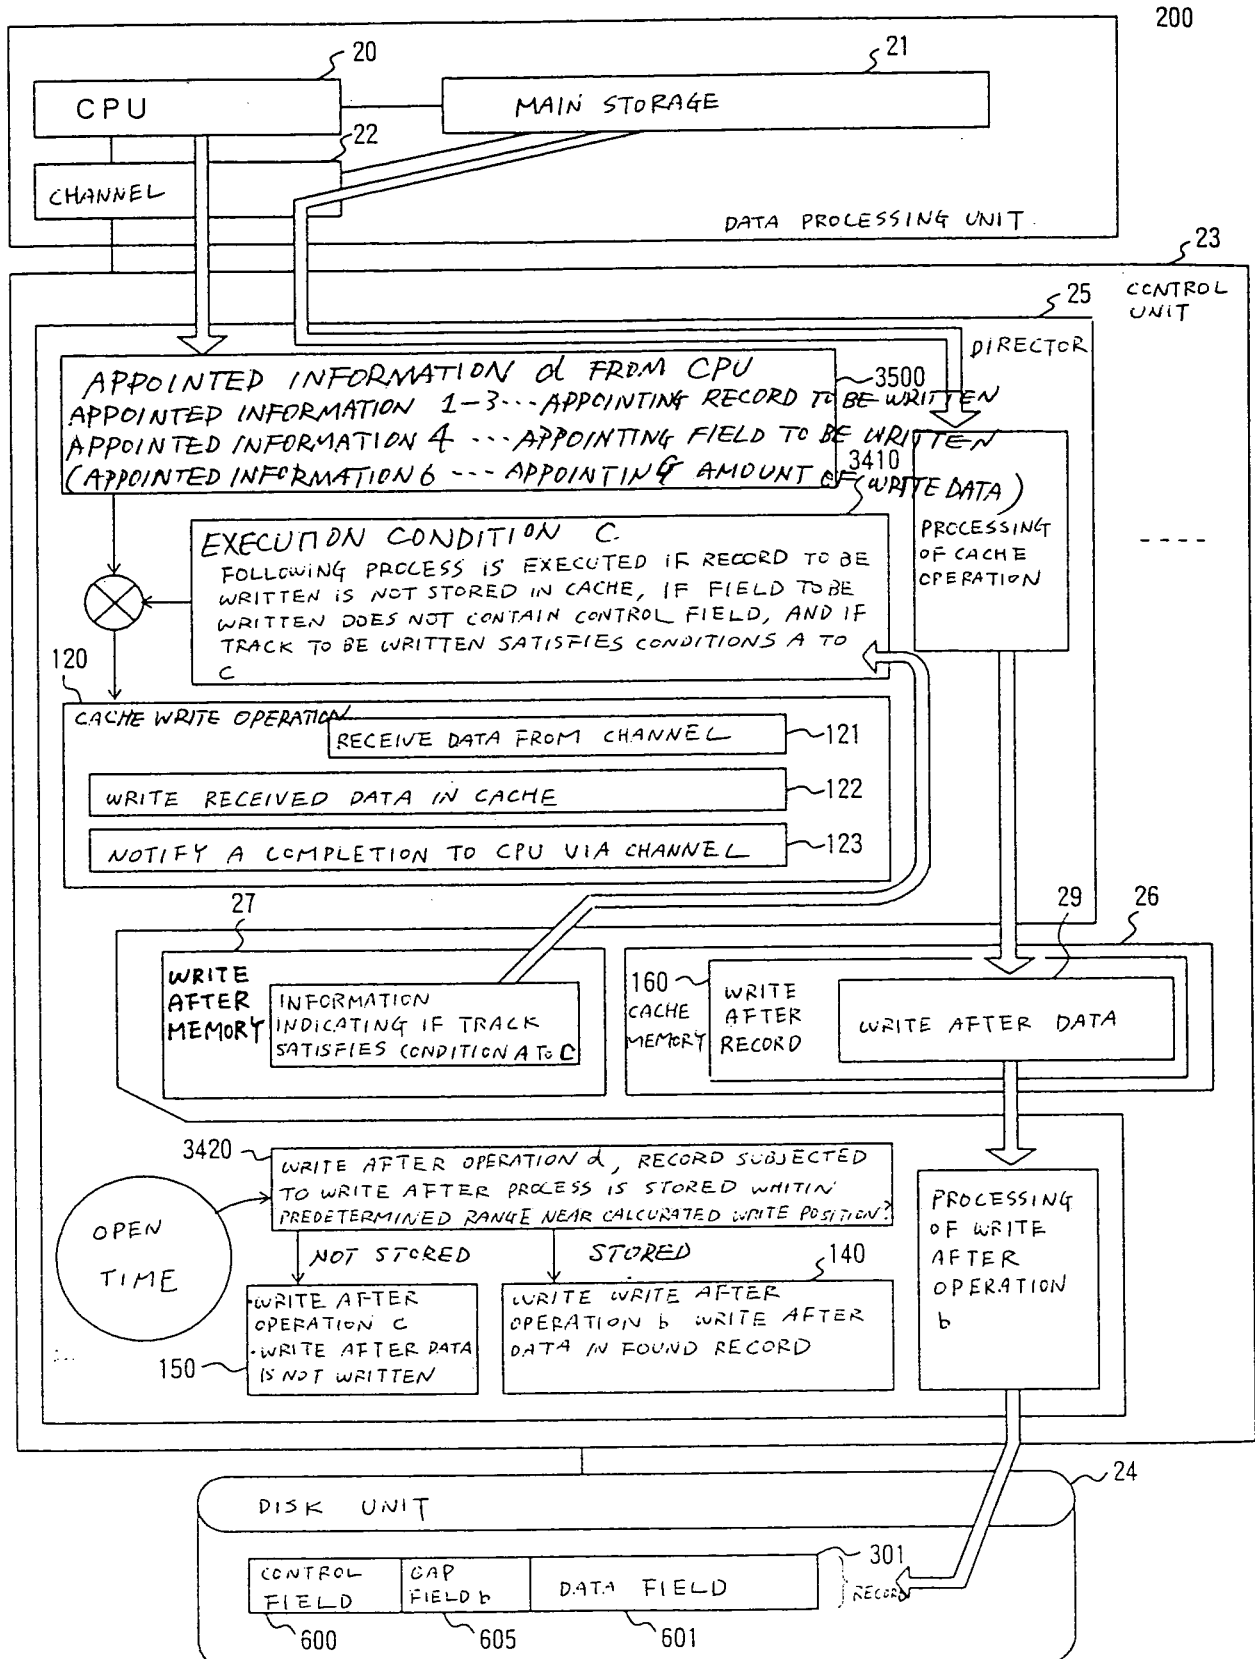 200
20
21
CPU
MAIN STORAGE
22
CHANNEL
DATA PROCESSING UNIT.
23
CONTROL
UNIT
25
DIRECTOR
APPOINTED INFORMATION d FROM CPU
3500
APPOINTED INFORMATION 1-3---APPOINTING RECORD TO BE WRITTEN
APPOINTED INFORMATION 4 --- APPOINTING FIELD TO BE WRITTEN
(APPOINTED INFORMATION 6 --- APPOINTING AMOUNT OF (WRITE DATA)
3410
EXECUTION CONDITION C.
FOLLOWING PROCESS IS EXECUTED IF RECORD TO BE
WRITTEN IS NOT STORED IN CACHE, IF FIELD TO BE
WRITTEN DOES NOT CONTAIN CONTROL FIELD, AND IF
TRACK TO BE WRITTEN SATISFIES CONDITIONS A TO
C
PROCESSING
OF CACHE
OPERATION
----
120
CACHE WRITE OPERATION
RECEIVE DATA FROM CHANNEL
121
WRITE RECEIVED DATA IN CACHE
122
NOTIFY A COMPLETION TO CPU VIA CHANNEL
123
27
WRITE
AFTER
MEMORY
INFORMATION
INDICATING IF TRACK
SATISFIES CONDITION A TO C
29
26
160
CACHE
MEMORY
WRITE
AFTER
RECORD
WRITE AFTER DATA
3420
WRITE AFTER OPERATION d, RECORD SUBJECTED
TO WRITE AFTER PROCESS IS STORED WHITIN
PREDETERMINED RANGE NEAR CALCURATED WRITE POSITION?
OPEN
TIME
NOT STORED
STORED
140
·WRITE AFTER
OPERATION C
·WRITE AFTER DATA
IS NOT WRITTEN
150
WRITE WRITE AFTER
OPERATION b WRITE AFTER
DATA IN FOUND RECORD
PROCESSING
OF WRITE
AFTER
OPERATION
b
24
DISK UNIT
301
CONTROL
FIELD
GAP
FIELD b
DATA FIELD
RECORD
600
605
601